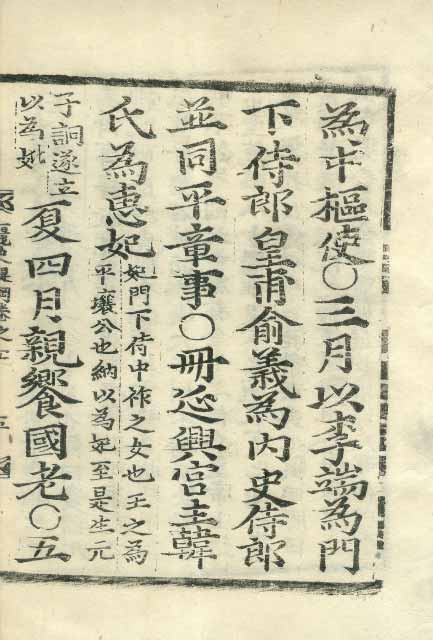 為中樞使○三月以李端為門
下侍郎皇甫俞義為内史侍郎
並同平章事○冊延興宮主韓
氏為惠妃
妃門下侍中祚之女也王之為
平壤公也納以為妃至是生元
子詞遂立
以為妣
夏四月親饗國老○五